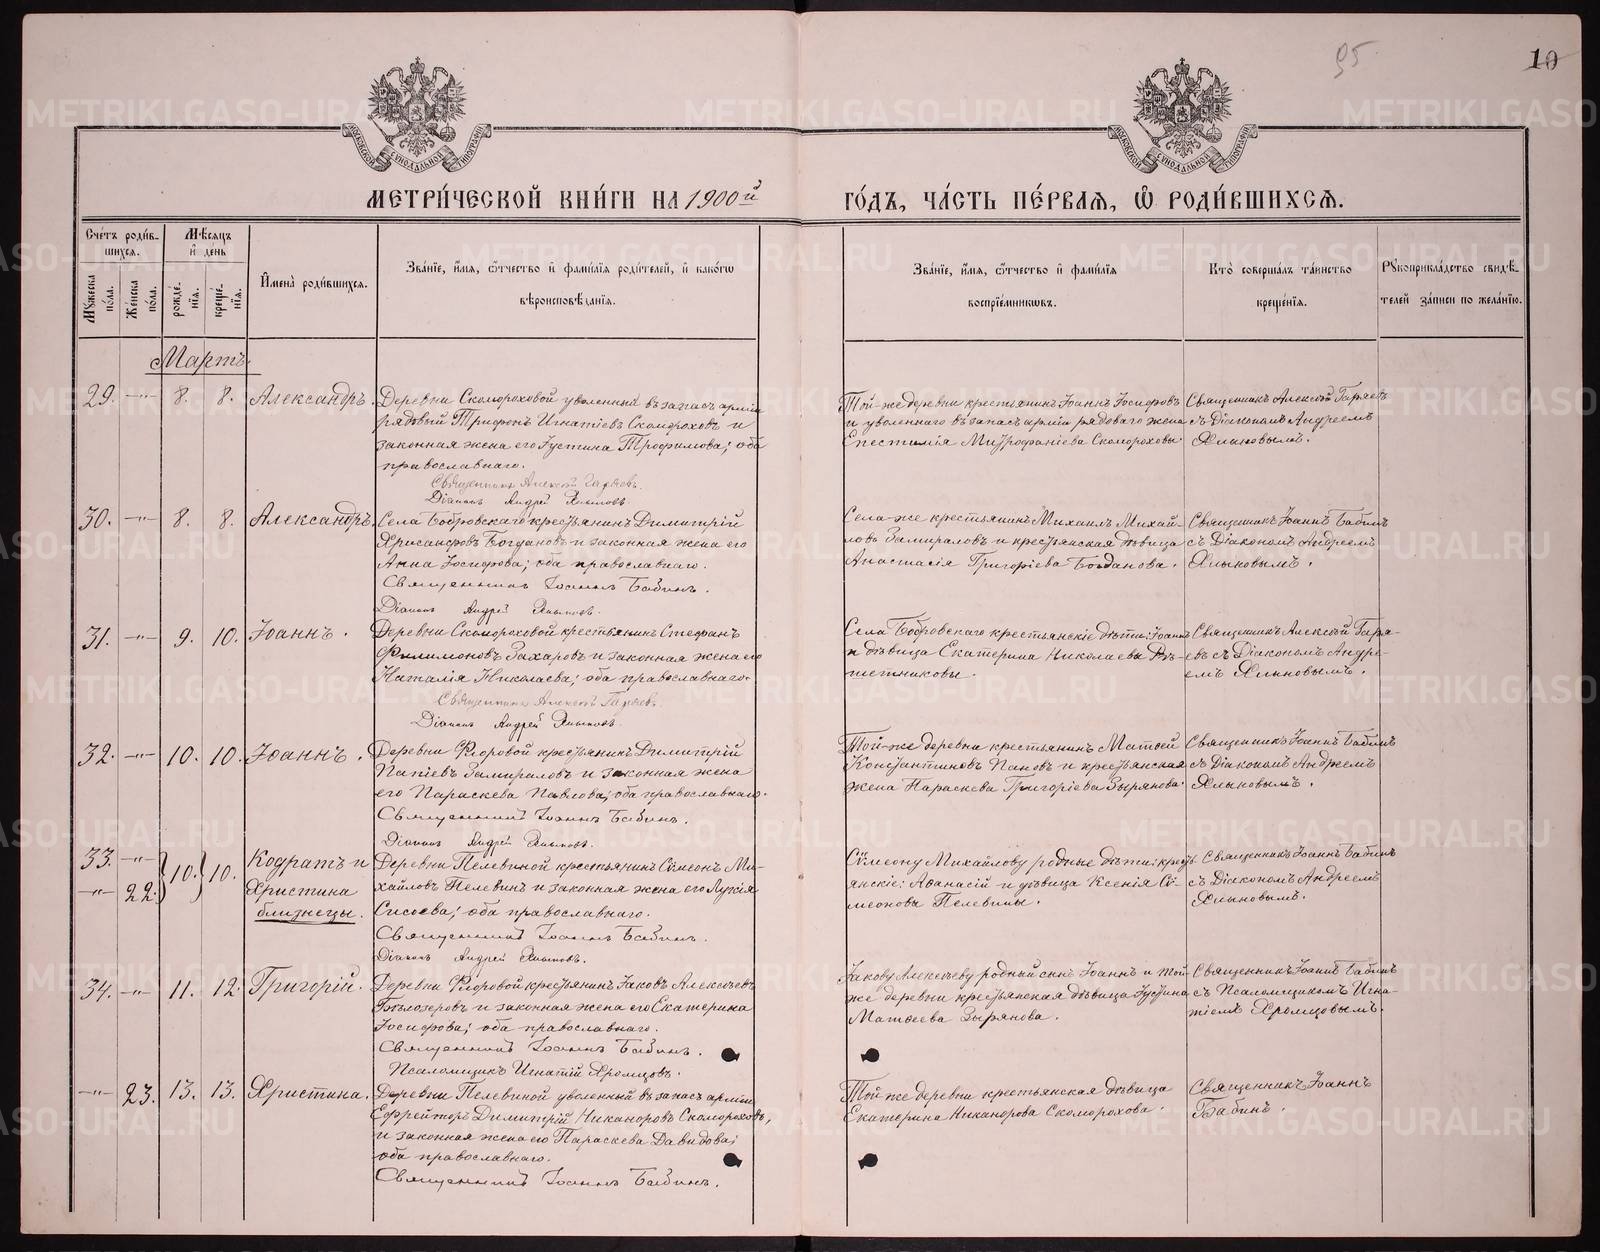 95
10
МЕТРИ́ЧЕСКОЙ КНИ́ГИ НА 1900й ГО́ДЪ, ЧА́СТЬ ПЕ́РВАЯ, Ѿ РОДИ́ВШИХСЯ.
Сче́тъ роди́в-
шихся.
Мѣ́сяцъ
и҆ де́нь
Му́жеска по́ла.
Же́нска по́ла.
рожде́-
нїя.
креще́-
нїя.
И҆мена̀ роди́вшихся.
Зва́нїе, и҆́мя, ѻ҆́тчество и҆ фами́лїя роди́телей, и҆ како́гѡ
вѣроисповѣ́данїя.
Зва́нїе, и҆́мя, ѻ҆́тчество и҆ фами́лїя
воспрїе́мникѡвъ.
Кто̀ соверша́лъ та́инство
креще́нїя.
Рꙋкоприкла́дство свидѣ́-
телей за́писи по жела́нїю.
Мартъ.
29. —"— 8. 8. Александръ.
Деревни Скомороховой уволенный въ запасъ арміи
рядовый Трифонъ Игнатіевъ Скомороховъ и
законная жена его Іустина Трофимова; оба
православнаго.
Священникъ Алексій Гаряевъ.
Діаконъ Андрей Ялыновъ.
Той-же деревни крестьянинъ Іоаннъ Іосифовъ
и уволеннаго въ запасъ арміи рядоваго жена
Епестимія Митрофаніева Скомороховы.
Священникъ Алексій Гаряевъ
съ Діакономъ Андреемъ
Ялыновымъ.
30. —"— 8. 8. Александръ.
Села Бобровскаго крестьянинъ Димитрій
Хрисанфовъ Богдановъ и законная жена его
Анна Іосифова; оба православнаго.
Священникъ Іоаннъ Бабинъ.
Діаконъ Андрей Ялыновъ.
Села-же крестьянинъ Михаилъ Михай-
ловъ Замираловъ и крестьянская дѣвица
Анастасія Григоріева Богданова.
Священникъ Іоаннъ Бабинъ
съ Діакономъ Андреемъ
Ялыновымъ.
31. —"— 9. 10. Іоаннъ.
Деревни Скомороховой крестьянинъ Стефанъ
Филимоновъ Захаровъ и законная жена его
Наталія Николаева; оба православнаго.
Священникъ Алексій Гаряевъ.
Діаконъ Андрей Ялыновъ.
Села Бобровскаго крестьянскіе дѣти: Іоаннъ
и дѣвица Екатерина Николаевы Рѣ-
шетниковы.
Священникъ Алексій Гаря-
евъ съ Діакономъ Андре-
емъ Ялыновымъ.
32. —"— 10. 10. Іоаннъ.
Деревни Флоровой крестьянинъ Димитрій
Папіевъ Замираловъ и законная жена
его Параскева Павлова; оба православнаго.
Священникъ Іоаннъ Бабинъ.
Діаконъ Андрей Ялыновъ.
Той-же деревни крестьянинъ Матѳей
Константиновъ Пановъ и крестьянская
жена Параскева Григоріева Зырянова.
Священникъ Іоаннъ Бабинъ
съ Діакономъ Андреемъ
Ялыновымъ.
33. —"—
—"— 22. 10. 10. Кодратъ и
Христина
близнецы.
Деревни Пелевиной крестьянинъ Сѵмеонъ Ми-
хайловъ Пелевинъ и законная жена его Лукія
Сисоева; оба православнаго.
Священникъ Іоаннъ Бабинъ.
Діаконъ Андрей Ялыновъ.
Сѵмеону Михайлову родные дѣти: кресть-
янскіе: Аѳанасій и дѣвица Ксенія Сѵ-
меоновы Пелевины.
Священникъ Іоаннъ Бабинъ
съ Діакономъ Андреемъ
Ялыновымъ.
34. —"— 11. 12. Григорій.
Деревни Флоровой крестьянинъ Іаковъ Алексѣевъ
Бѣлозеровъ и законная жена его Екатерина
Іосифова; оба православнаго.
Священникъ Іоаннъ Бабинъ.
Псаломщикъ Игнатій Хромцовъ.
Іакову Алексѣеву родный сынъ Іоаннъ и той-
же деревни крестьянская дѣвица Іустина
Матѳеева Зырянова.
Священникъ Іоаннъ Бабинъ
съ Псаломщикомъ Игна-
тіемъ Хромцовымъ.
—"— 23. 13. 13. Христина.
Деревни Пелевиной уволенный въ запасъ арміи
Ефрейторъ Димитрій Никаноровъ Скомороховъ,
и законная жена его Параскева Давидова;
оба православнаго.
Священникъ Іоаннъ Бабинъ.
Той же деревни крестьянская дѣвица
Екатерина Никанорова Скоморохова.
Священникъ Іоаннъ
Бабинъ.
METRIKI.GASO-URAL.RU